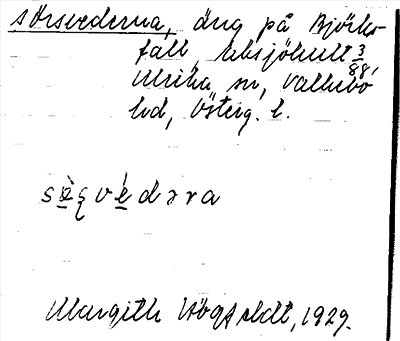 Sörsvederna, äng på Björks-
fall Uksjöhult 3/88,
Ulrika sn, Vallebo
hd, Österg. l.
Margith Högfeldt, 1929.